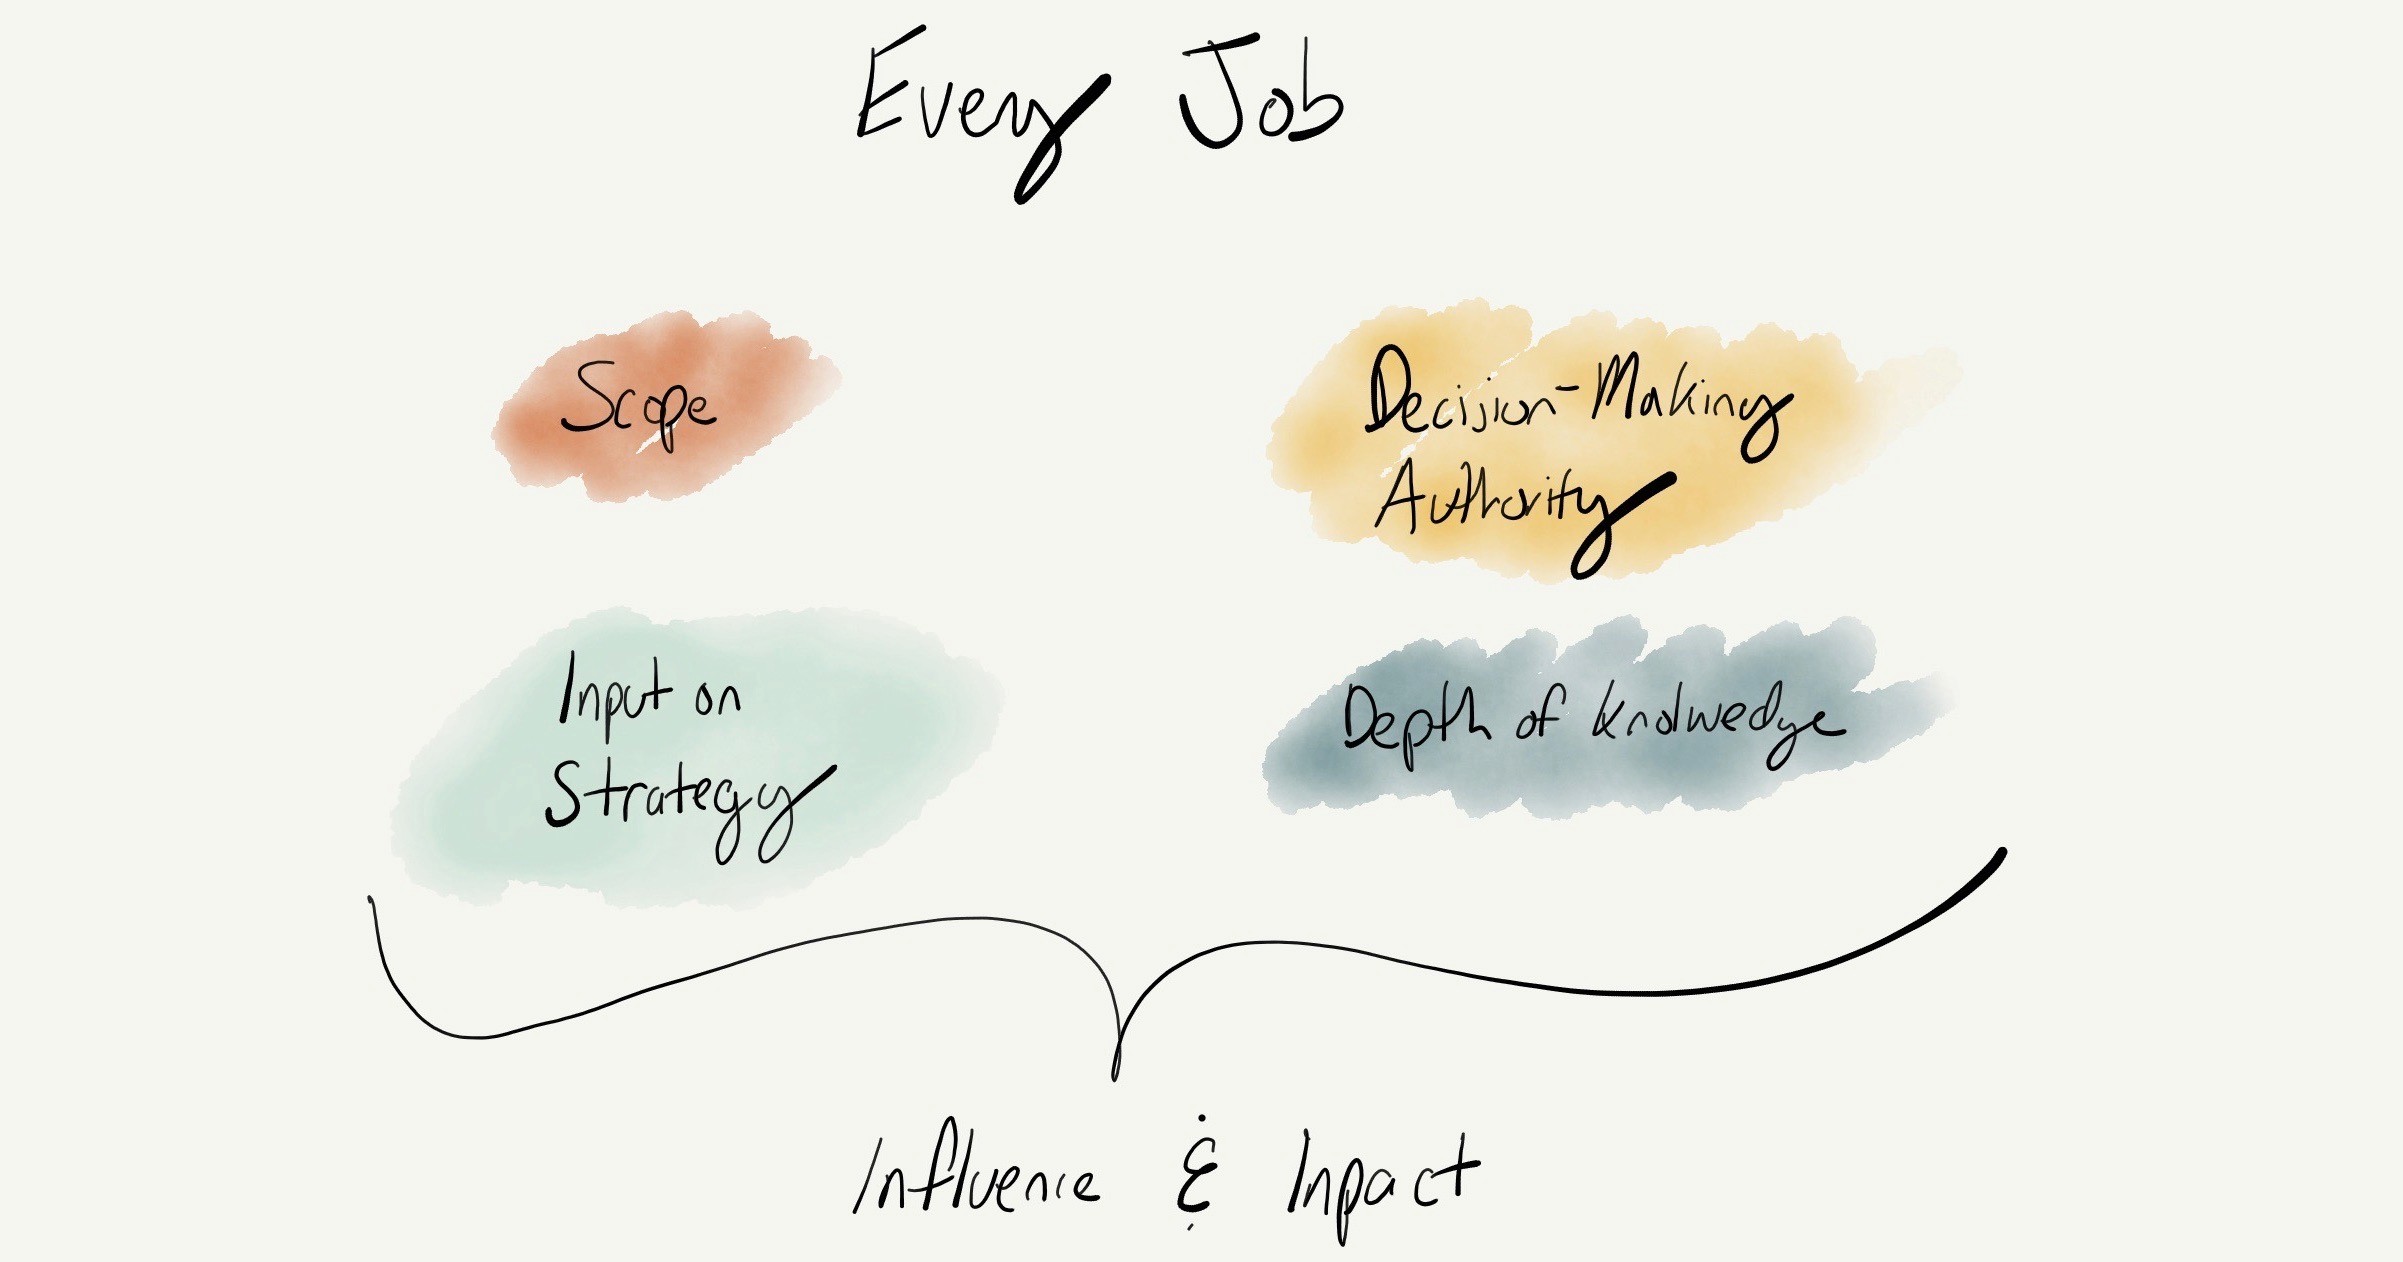 Every Job
Scope
Decision-Making
Authority
Input on
Strategy
Depth of knolwedge
Influence & Inpact